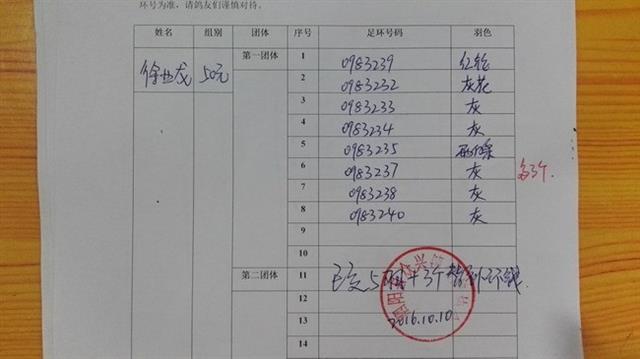 环号为准，请鸽友们谨慎对待。
姓名 组别 团体 序号 足环号码 羽色
徐 龙 50元 第一团体 1 0983239 红轮
2 0983232 灰花
3 0983233 灰
4 0983234 灰
5 0983235
6 0983237 灰 多3个.
7 0983238 灰
8 0983240 灰
9
10
第二团体 11 已交5 +3个 环钱
12
2016.10.10
13
14